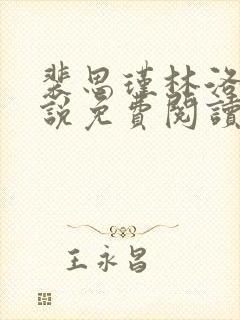 裴思瑾林洛
說免費閱讀
王永昌